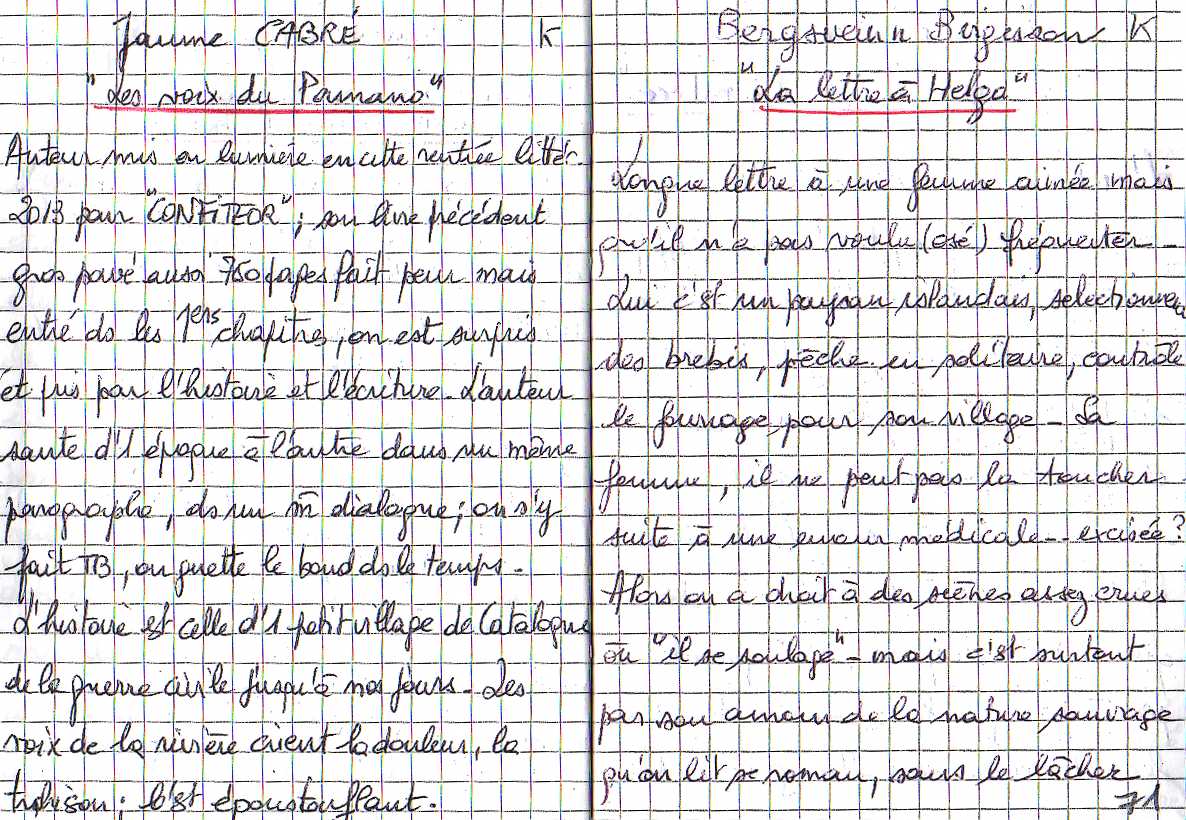 Jaume CABRÉ K
"Les voix du Pamano"
Auteur mis en lumière en cette rentrée littér.
2013 pour "CONFITEOR"; son livre précédent
gros pavé aussi 750 pages fait peur mais
entré ds les 1ers chapitres, on est surpris
et pris par l'histoire et l'écriture. L'auteur
saute d'1 époque à l'autre dans un même
paragraphe, ds un m̄ dialogue; on s'y
fait TB, on guette le bond ds le temps.
L'histoire est celle d'1 petit village de Catalogne
de la guerre civile jusqu'à nos jours. Les
voix de la rivière crient la douleur, la
trahison; c'est époustouflant.
Bergsveinn Birgisson K
"La lettre à Helga"
Longue lettre à une femme aimée mais
qu'il n'a pas voulu (osé) fréquenter.
Lui c'est un paysan islandais, sélectionneur
des brebis, pêche en solitaire, contrôle
le fourrage pour son village. Sa
femme, il ne peut pas la toucher
suite à une erreur médicale.. excisée?
Alors on a droit à des scènes assez crues
où "il se soulage" - mais c'est surtout
par son amour de la nature sauvage
qu'on lit ce roman, sans le lâcher
71